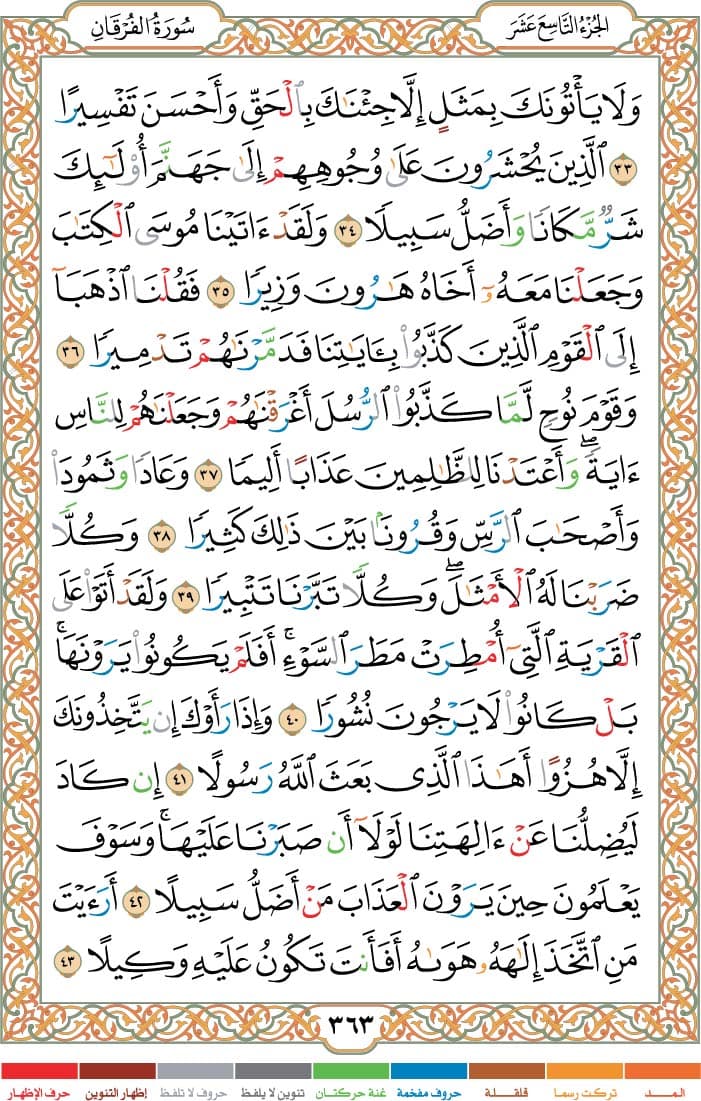 الجُزْءُ التَّاسِعَ عَشَرَ
سُورَةُ الفُرْقَانِ
وَلَا يَأْتُونَكَ بِمَثَلٍ إِلَّا جِئْنَٰكَ بِٱلْحَقِّ وَأَحْسَنَ تَفْسِيرًا
٣٣ ٱلَّذِينَ يُحْشَرُونَ عَلَىٰ وُجُوهِهِمْ إِلَىٰ جَهَنَّمَ أُو۟لَٰٓئِكَ
شَرٌّ مَّكَانًا وَأَضَلُّ سَبِيلًا ٣٤ وَلَقَدْ ءَاتَيْنَا مُوسَى ٱلْكِتَٰبَ
وَجَعَلْنَا مَعَهُۥٓ أَخَاهُ هَٰرُونَ وَزِيرًا ٣٥ فَقُلْنَا ٱذْهَبَآ
إِلَى ٱلْقَوْمِ ٱلَّذِينَ كَذَّبُوا۟ بِـَٔايَٰتِنَا فَدَمَّرْنَٰهُمْ تَدْمِيرًا ٣٦
وَقَوْمَ نُوحٍ لَّمَّا كَذَّبُوا۟ ٱلرُّسُلَ أَغْرَقْنَٰهُمْ وَجَعَلْنَٰهُمْ لِلنَّاسِ
ءَايَةً ۖ وَأَعْتَدْنَا لِلظَّٰلِمِينَ عَذَابًا أَلِيمًا ٣٧ وَعَادًا وَثَمُودَا۟
وَأَصْحَٰبَ ٱلرَّسِّ وَقُرُونًۢا بَيْنَ ذَٰلِكَ كَثِيرًا ٣٨ وَكُلًّا
ضَرَبْنَا لَهُ ٱلْأَمْثَٰلَ ۖ وَكُلًّا تَبَّرْنَا تَتْبِيرًا ٣٩ وَلَقَدْ أَتَوْا۟ عَلَى
ٱلْقَرْيَةِ ٱلَّتِىٓ أُمْطِرَتْ مَطَرَ ٱلسَّوْءِ ۚ أَفَلَمْ يَكُونُوا۟ يَرَوْنَهَا ۚ
بَلْ كَانُوا۟ لَا يَرْجُونَ نُشُورًا ٤٠ وَإِذَا رَأَوْكَ إِن يَتَّخِذُونَكَ
إِلَّا هُزُوًا أَهَٰذَا ٱلَّذِى بَعَثَ ٱللَّهُ رَسُولًا ٤١ إِن كَادَ
لَيُضِلُّنَا عَنْ ءَالِهَتِنَا لَوْلَآ أَن صَبَرْنَا عَلَيْهَا ۚ وَسَوْفَ
يَعْلَمُونَ حِينَ يَرَوْنَ ٱلْعَذَابَ مَنْ أَضَلُّ سَبِيلًا ٤٢ أَرَءَيْتَ
مَنِ ٱتَّخَذَ إِلَٰهَهُۥ هَوَىٰهُ أَفَأَنتَ تَكُونُ عَلَيْهِ وَكِيلًا ٤٣
٣٦٣
المـــد تركت رسما قلقلة حروف مفخمة غنة حركتان تنوين لا يلفظ حروف لا تلفظ إظهار التنوين حرف الإظهار